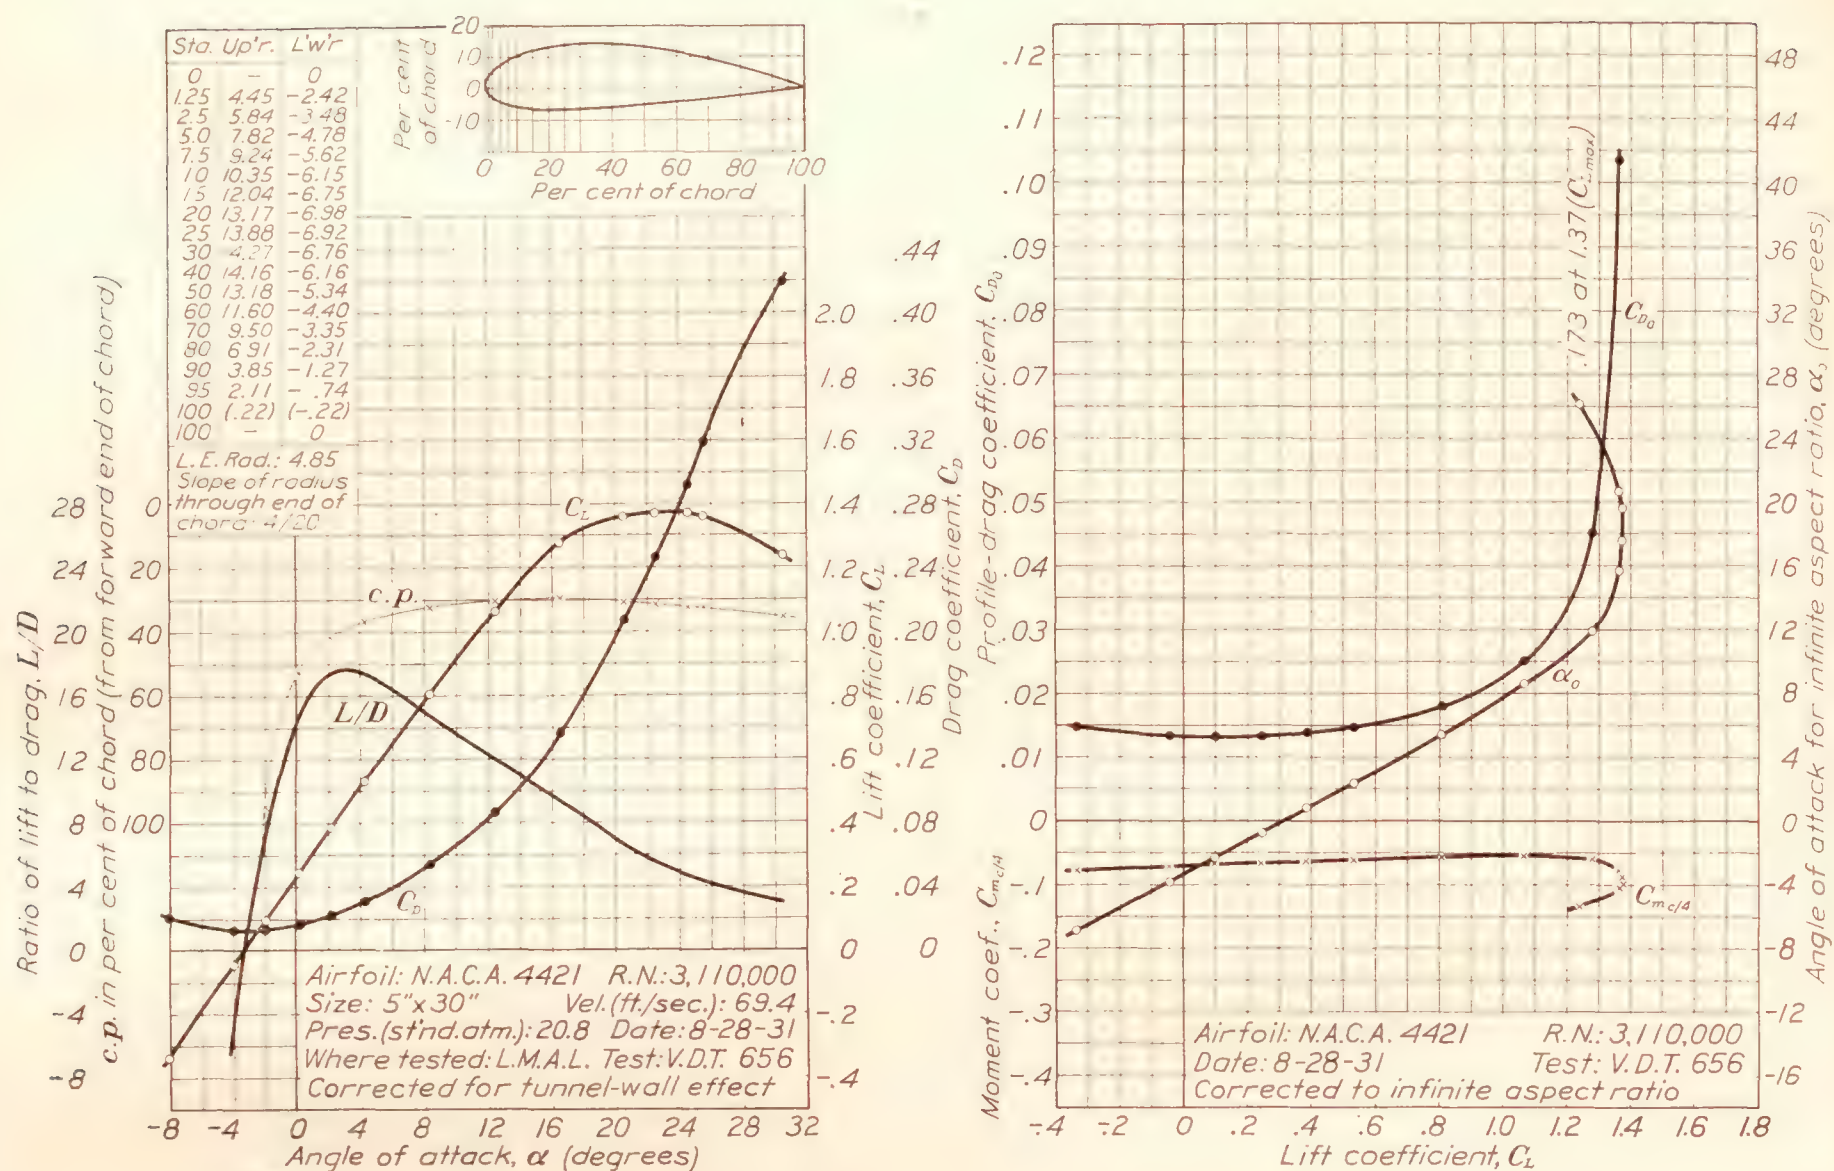 Sta. Up'r. L'w'r
0 – 0
1.25 4.45 -2.42
2.5 5.84 -3.48
5.0 7.82 -4.78
7.5 9.24 -5.62
10 10.35 -6.15
15 12.04 -6.75
20 13.17 -6.98
25 13.88 -6.92
30 4.27 -6.76
40 14.16 -6.16
50 13.18 -5.34
60 11.60 -4.40
70 9.50 -3.35
80 6.91 -2.31
90 3.85 -1.27
95 2.11 - .74
100 (.22) (-.22)
100 – 0
L.E. Rad.: 4.85
Slope of radius
through end of
chord: 4/20
Per cent
of chord
20
10
0
-10
0 20 40 60 80 100
Per cent of chord
Ratio of lift to drag, L/D
28
24
20
16
12
8
4
0
-4
-8
c.p. in per cent of chord (from forward end of chord)
0
20
40
60
80
100
C_L
c.p.
L/D
C_D
2.0
1.8
1.6
1.4
1.2
1.0
.8
.6
.4
.2
0
-.2
-.4
Lift coefficient, C_L
.44
.40
.36
.32
.28
.24
.20
.16
.12
.08
.04
0
Drag coefficient, C_D
Airfoil: N.A.C.A. 4421 R.N.: 3,110,000
Size: 5"x30" Vel. (ft./sec.): 69.4
Pres. (st'nd. atm.): 20.8 Date: 8-28-31
Where tested: L.M.A.L. Test: V.D.T. 656
Corrected for tunnel-wall effect
-8 -4 0 4 8 12 16 20 24 28 32
Angle of attack, α (degrees)
Profile-drag coefficient, C_D0
.12
.11
.10
.09
.08
.07
.06
.05
.04
.03
.02
.01
0
Moment coef., C_mc/4
-.1
-.2
-.3
-.4
.173 at 1.37 (C_Lmax)
C_D0
α_0
C_mc/4
48
44
40
36
32
28
24
20
16
12
8
4
0
-4
-8
-12
-16
Angle of attack for infinite aspect ratio, α_0 (degrees)
Airfoil: N.A.C.A. 4421 R.N.: 3,110,000
Date: 8-28-31 Test: V.D.T. 656
Corrected to infinite aspect ratio
-.4 -.2 0 .2 .4 .6 .8 1.0 1.2 1.4 1.6 1.8
Lift coefficient, C_L